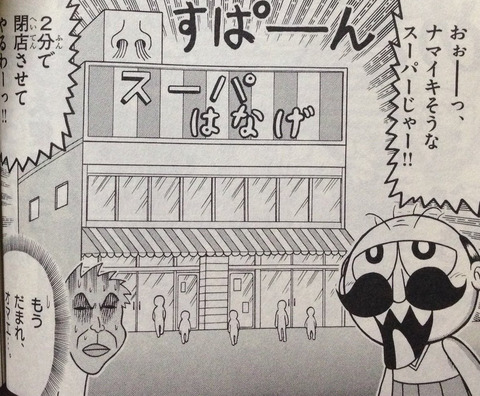 すぱーん
おぉーっ、
ナマイキそうな
スーパーじゃー!!
スーパー
はなげ
2分で
ふん
閉店させて
へいてん
やるわーっ!!
もう
だまれ、